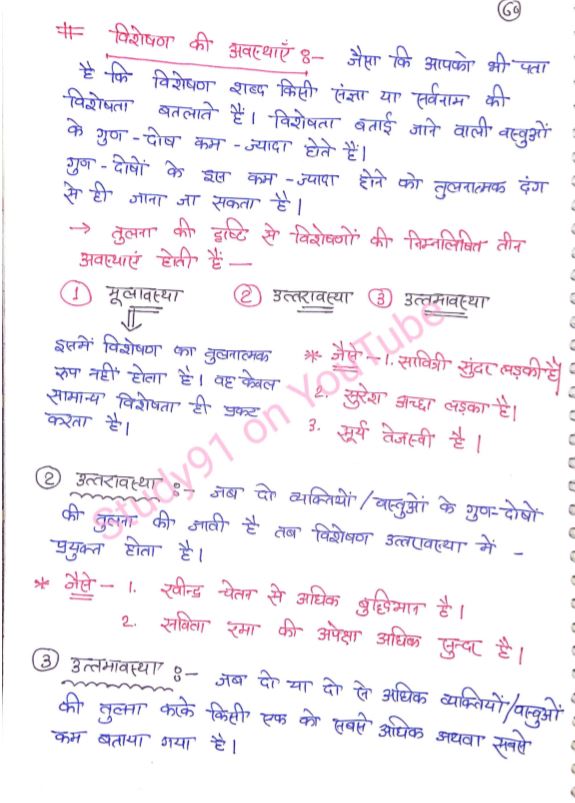 60
# विशेषण की अवस्थाएँ :- जैसा कि आपको भी पता
है कि विशेषण शब्द किसी संज्ञा या सर्वनाम की
विशेषता बतलाते हैं। विशेषता बताई जाने वाली वस्तुओं
के गुण - दोष कम - ज्यादा होते हैं।
गुण - दोषों के इस कम - ज्यादा होने को तुलनात्मक ढंग
से ही जाना जा सकता है।
→ तुलना की दृष्टि से विशेषणों की निम्नलिखित तीन
अवस्थाएं होती हैं —
① मूलावस्था ② उत्तरावस्था ③ उत्तमावस्था
इसमें विशेषण का तुलनात्मक
रुप नहीं होता है। वह केवल
सामान्य विशेषता ही प्रकट
करता है।
* जैसे - 1. सावित्री सुंदर लड़की है
2. सुरेश अच्छा लड़का है।
3. सूर्य तेजस्वी है।
② उत्तरावस्था :- जब दो व्यक्तियों/वस्तुओं के गुण-दोषों
की तुलना की जाती है तब विशेषण उत्तरावस्था में -
प्रयुक्त होता है।
* जैसे - 1. रवीन्द्र चेतन से अधिक बुद्धिमान है।
2. सविता रमा की अपेक्षा अधिक सुन्दर है।
③ उत्तमावस्था :- जब दो या दो से अधिक व्यक्तियों/वस्तुओं
की तुलना करके किसी एक को सबसे अधिक अथवा सबसे
कम बताया गया है।
Study91 on YouTube